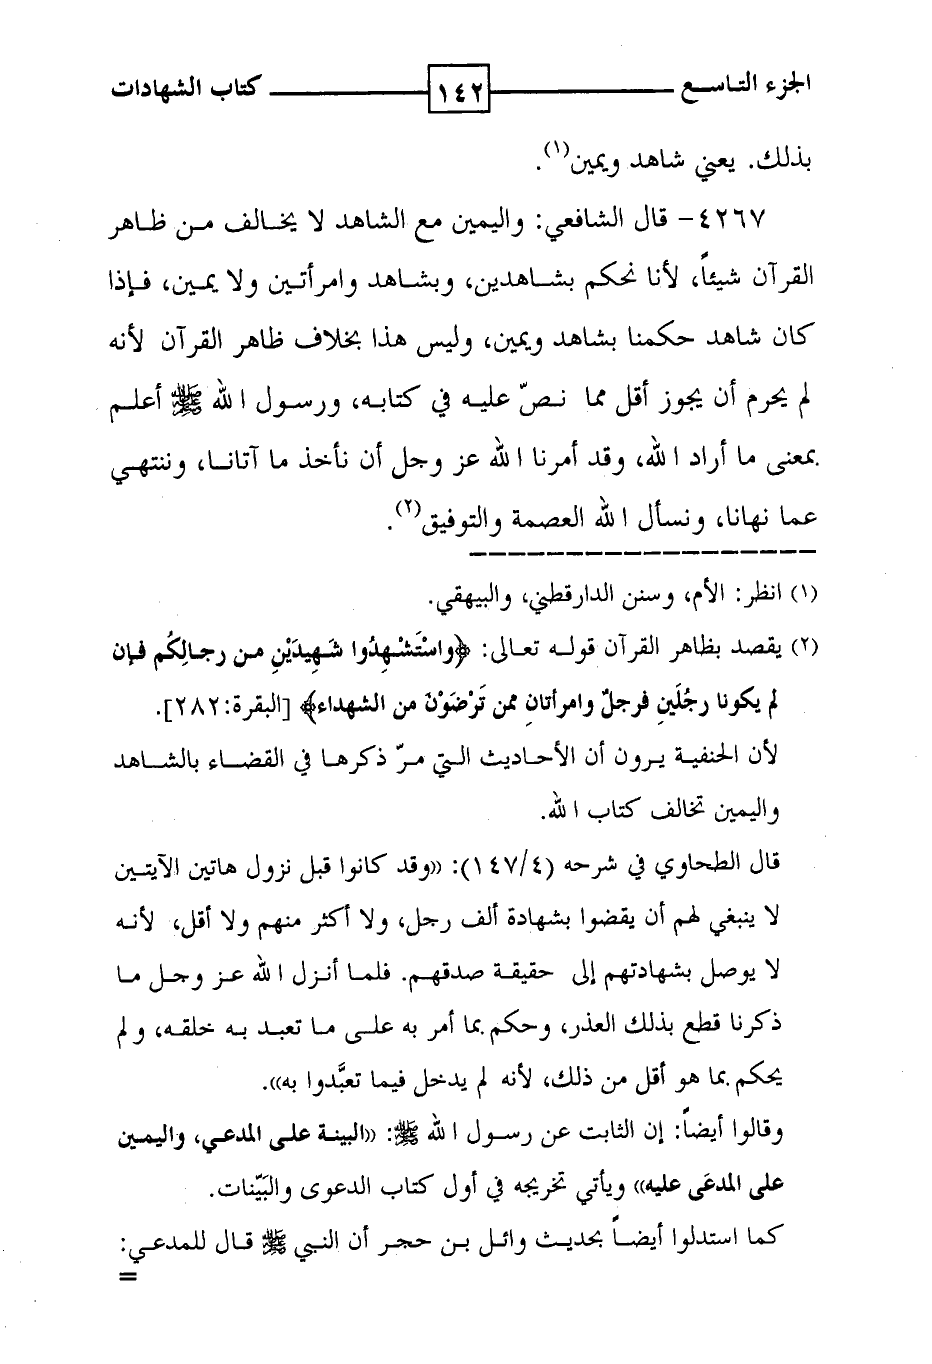 الجزء التاسع ١٤٢ كتاب الشهادات
بذلك. يعني شاهد ويمين(١).
٤٢٦٧- قال الشافعي: واليمين مع الشاهد لا يخالف من ظاهر
القرآن شيئاً، لأنا نحكم بشاهدين، وبشاهد وامرأتين ولا يمين، فإذا
كان شاهد حكمنا بشاهد ويمين، وليس هذا بخلاف ظاهر القرآن لأنه
لم يحرم أن يجوز أقل مما نصّ عليه في كتابه، ورسول الله ﷺ أعلم
بمعنى ما أراد الله، وقد أمرنا الله عز وجل أن نأخذ ما آتانا، وننتهي
عما نهانا، ونسأل الله العصمة والتوفيق(٢).
(١) انظر: الأم، وسنن الدارقطني، والبيهقي.
(٢) يقصد بظاهر القرآن قوله تعالى: ﴿واسْتَشْهِدُوا شَهِيدَيْنِ من رجالِكُم فإن
لم يكونا رجُلَينِ فرجلٌ وامرأتانِ ممن تَرْضَوْنَ من الشهداء﴾ [البقرة:٢٨٢].
لأن الحنفية يرون أن الأحاديث التي مرّ ذكرها في القضاء بالشاهد
واليمين تخالف كتاب الله.
قال الطحاوي في شرحه (١٤٧/٤): ((وقد كانوا قبل نزول هاتين الآيتين
لا ينبغي لهم أن يقضوا بشهادة ألف رجل، ولا أكثر منهم ولا أقل، لأنه
لا يوصل بشهادتهم إلى حقيقة صدقهم. فلما أنزل الله عز وجل ما
ذكرنا قطع بذلك العذر، وحكم بما أمر به على ما تعبد به خلقه، ولم
يحكم بما هو أقل من ذلك، لأنه لم يدخل فيما تعبَّدوا به)).
وقالوا أيضاً: إن الثابت عن رسول الله ﷺ: ((البينة على المدعي، واليمين
على المدعَى عليه)) ويأتي تخريجه في أول كتاب الدعوى والبيّنات.
كما استدلوا أيضاً بحديث وائل بن حجر أن النبي ﷺ قال للمدعي:
=